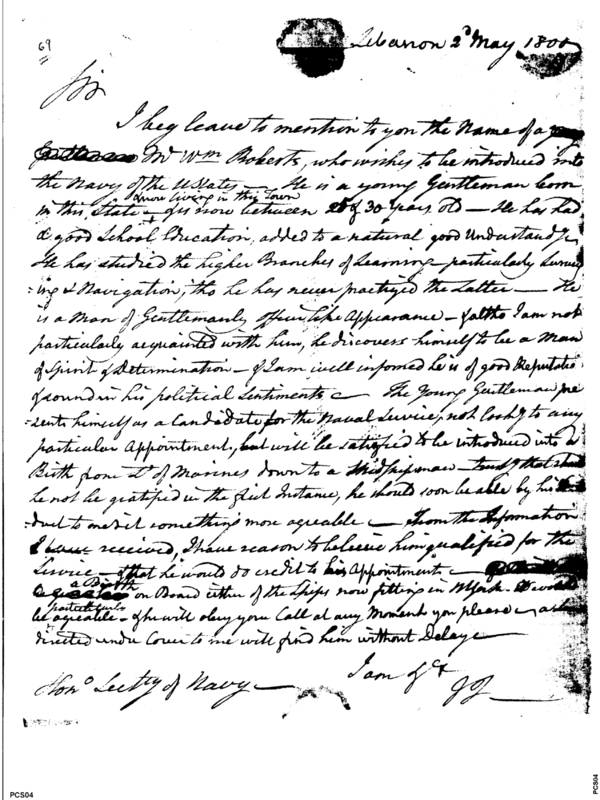 69
Lebanon 2d May 1800
Sir
I beg leave to mention to you the Name of a
Mr Wm Roberts, who wishes to be introduced into
the Navy of the UStates — He is a young Gentleman born
& now living in this Town
in this State — & is now between 25 & 30 Years old — He has had
a good School Education, added to a natural good Understandg
He has studied the higher Branches of Learning — particularly Survey
=ing & Navigation, tho he has never practized the Latter — He
is a Man of Gentlemanly officer like Appearance — & altho I am not
particularly acquainted with him, he discovers himself to be a Man
of Spirit & Determination — & I am well informed he is of good Reputatio
& sound in his political Sentiments — The Young Gentleman pre
=sents himself as a Candidate for the Naval Service, not lookg to any
particular Appointment, but will be satisfied to be introduced into a
Birth from Lt of Marines down to a Midshipman — that
he not be gratified in the first Instance, he should soon be able by his
=duct to merit something more agreable — From the Information
I have received, I have reason to believe him qualified for the
Service — & that he would do credit to his Appointment —
a Birth
on Board either of the Ships now fitting in NYork
particularly
be agreable — & he will obey your Call at any Moment you please —
directed under Cover to me will find him without Delay —
I am &c
Hono Secty of Navy —
PCS04
PCS04